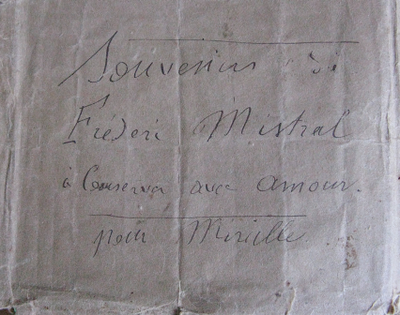 Souvenirs de
Fréderi Mistral
à Conserver avec amour.
pour Mireille